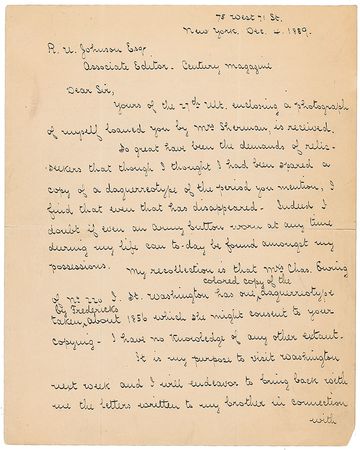 75 West 71 St.
New York, Dec. 4. 1889.
R. U. Johnson Esq
Associate Editor - Century Magazine
Dear Sir,
Yours of the 27th Ult. enclosing a photograph
of myself loaned you by Mrs Sherman, is received.
So great have been the demands of relic-
seekers that though I thought I had been spared a
copy of a daguerreotype of the period you mention, I
find that even that has disappeared - Indeed I
doubt if even an army button worn at any time
during my life can to-day be found amongst my
possessions. My recollection is that Mrs Chas. Ewing
colored copy of the
of No. 220 I. St. Washington has one, daguerreotype
by Fredericks
taken about 1856 which she might consent to your
copying - I have no knowledge of any other extant.
It is my purpose to visit Washington
next week and I will endeavor to bring back with
me the letters written to my brother in connection
with